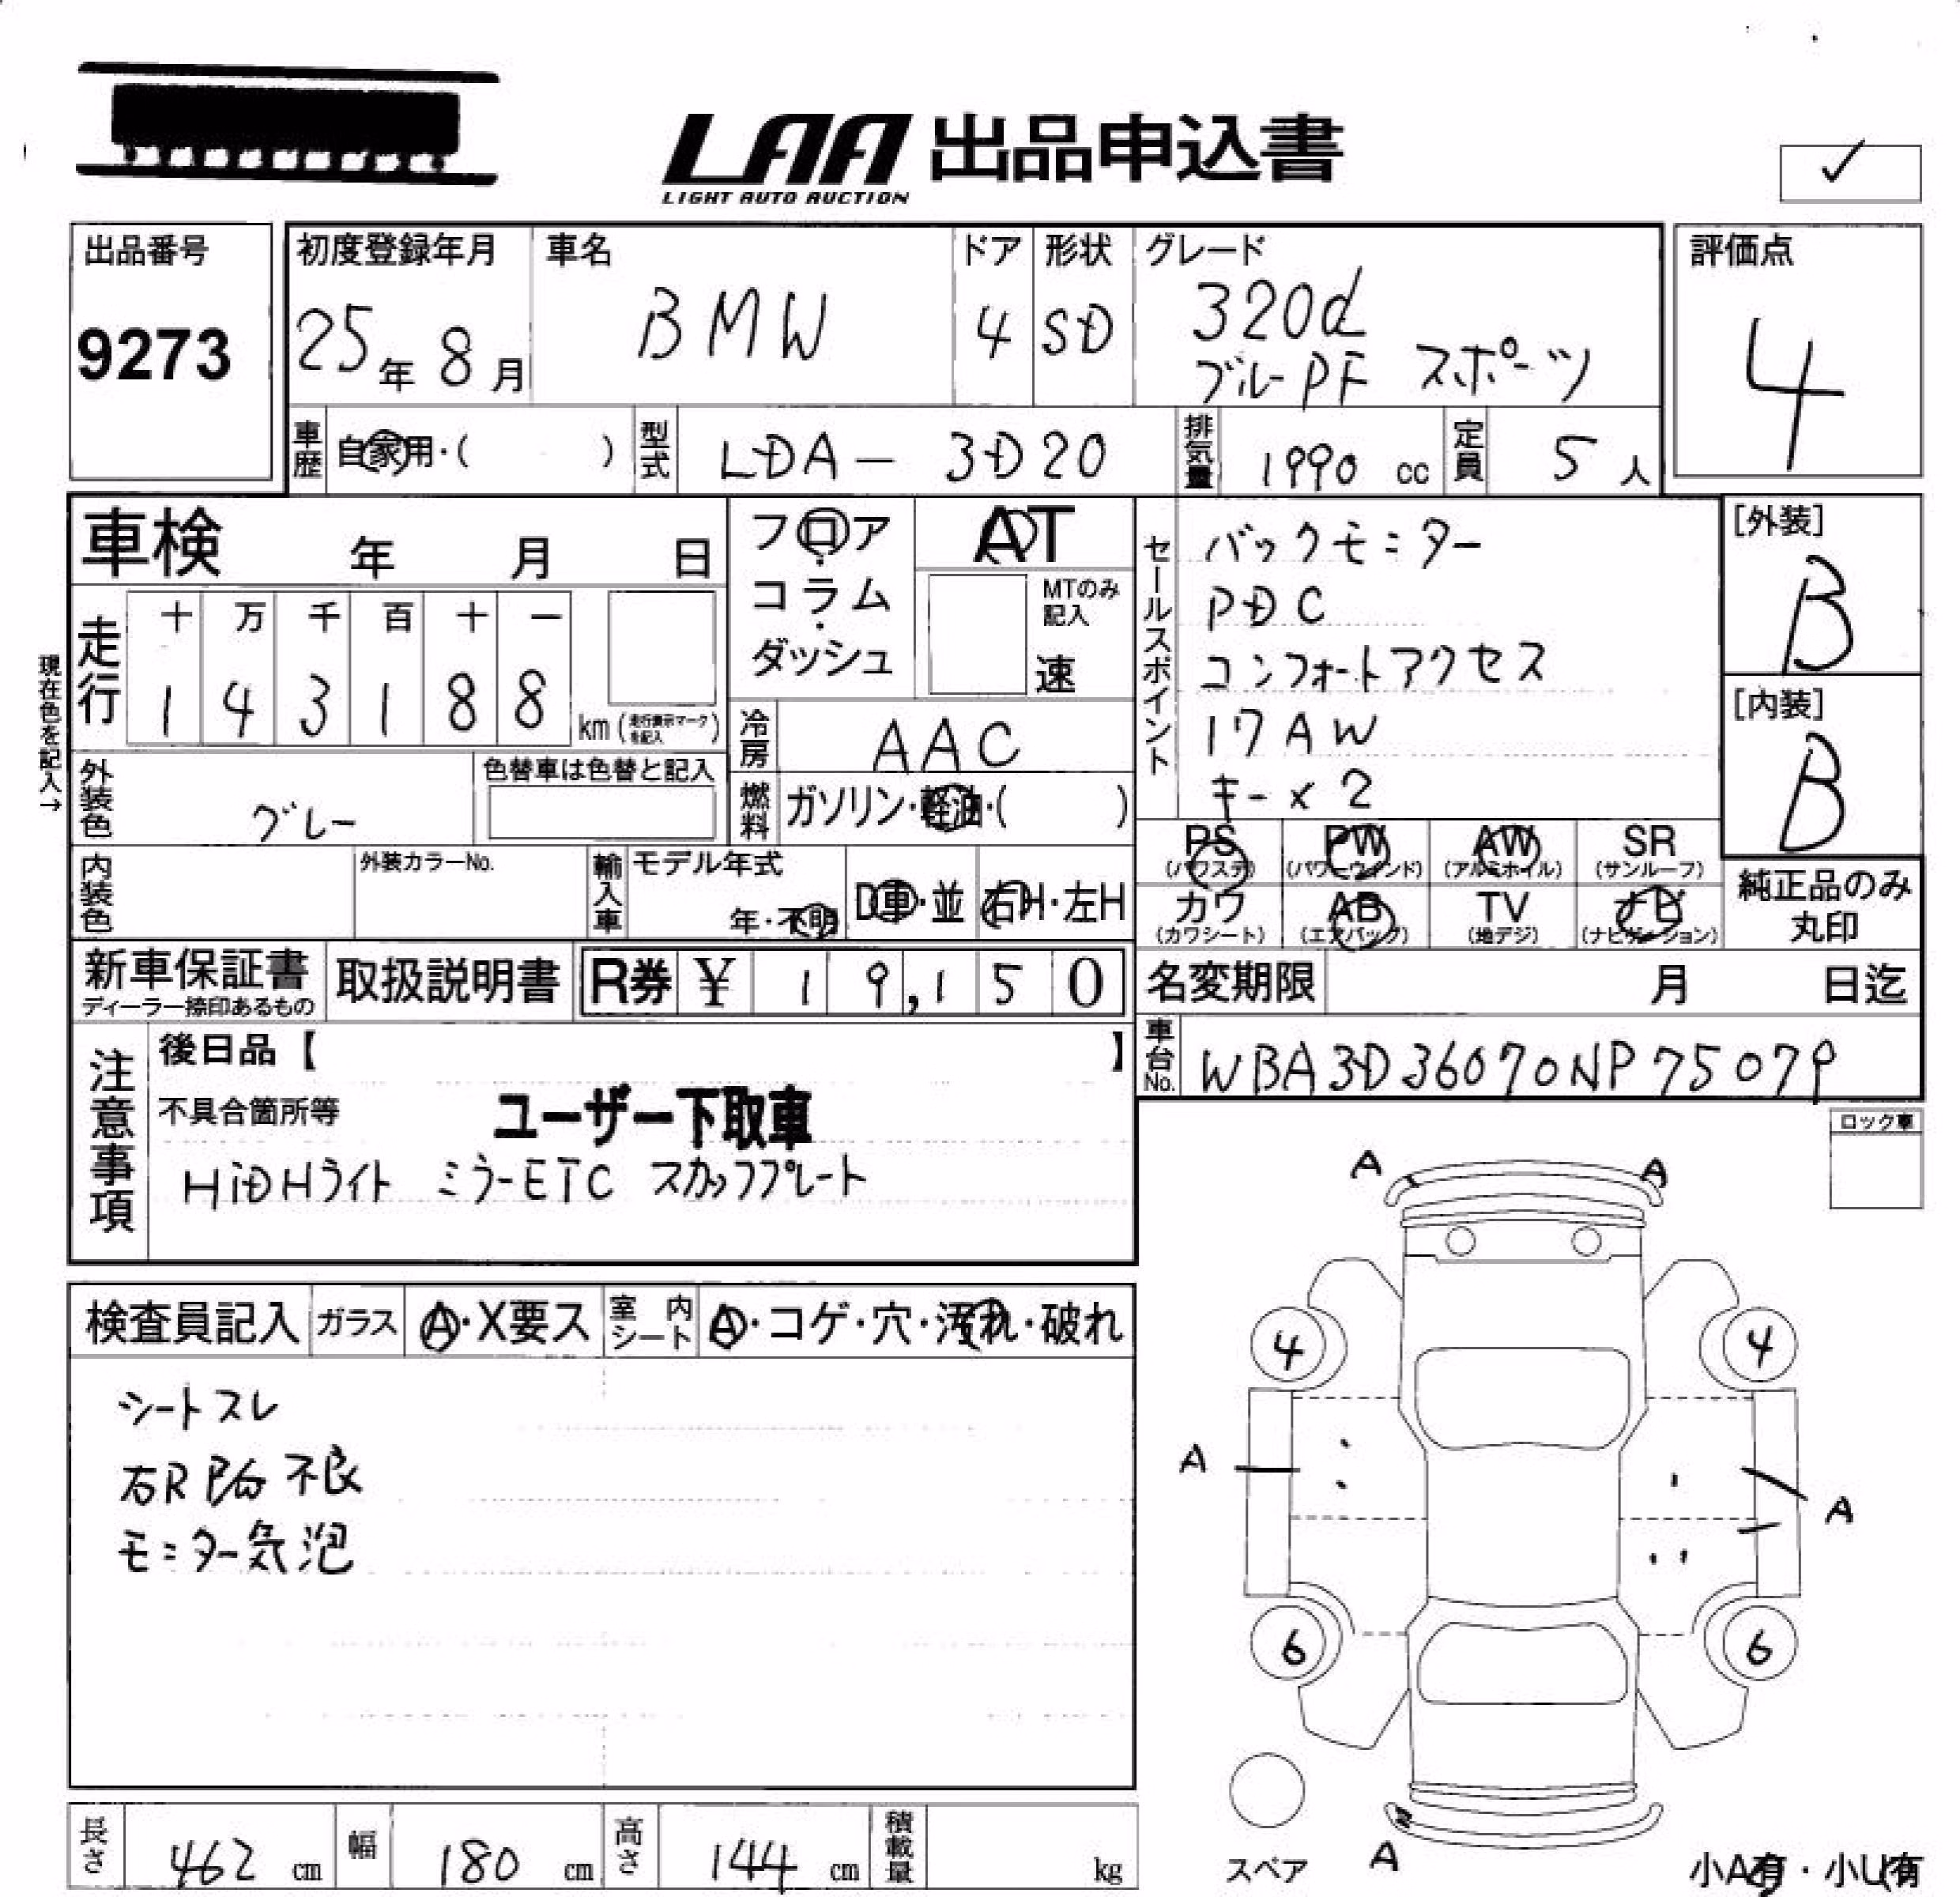 LAA 出品申込書
LIGHT AUTO AUCTION
✓
出品番号
9273
初度登録年月
25年 8月
車名
BMW
ドア
4
形状
SD
グレード
320d
ブルーPF スポーツ
評価点
4
車歴
自家用・( )
型式
LDA- 3D20
排気量
1990 cc
定員
5 人
車検 年 月 日
フロア・コラム・ダッシュ
AT
MTのみ記入
速
セールスポイント
バックモニター
PDC
コンフォートアクセス
17AW
キー×2
[外装]
B
[内装]
B
現在色を記入→
走行
十 万 千 百 十 一
1 4 3 1 8 8 km (走行表示マークを記入)
冷房
AAC
外装色
グレー
色替車は色替と記入
燃料
ガソリン・軽油・( )
PS (パワステ) PW (パワーウインド) AW (アルミホイル) SR (サンルーフ)
カワ (カワシート) AB (エアバッグ) TV (地デジ) ナビ (ナビゲーション)
純正品のみ丸印
内装色
外装カラーNo.
輸入車
モデル年式
年・不明
D車・並
右H・左H
新車保証書
ディーラー捺印あるもの
取扱説明書
R券 ¥ 1 9,1 5 0
名変期限 月 日迄
車台No.
WBA3D36070NP75079
注意事項
後日品【 】
不具合箇所等
ユーザー下取車
HiDHライト ミラーETC スカッフプレート
ロック車
検査員記入
ガラス
A・X要ス
室内シート
A・コゲ・穴・汚れ・破れ
シートスレ
右R 不良
モニター気泡
A A
4 4
A
A
6 6
スペア
A
小A有・小U有
長さ
462 cm
幅
180 cm
高さ
144 cm
積載量
kg